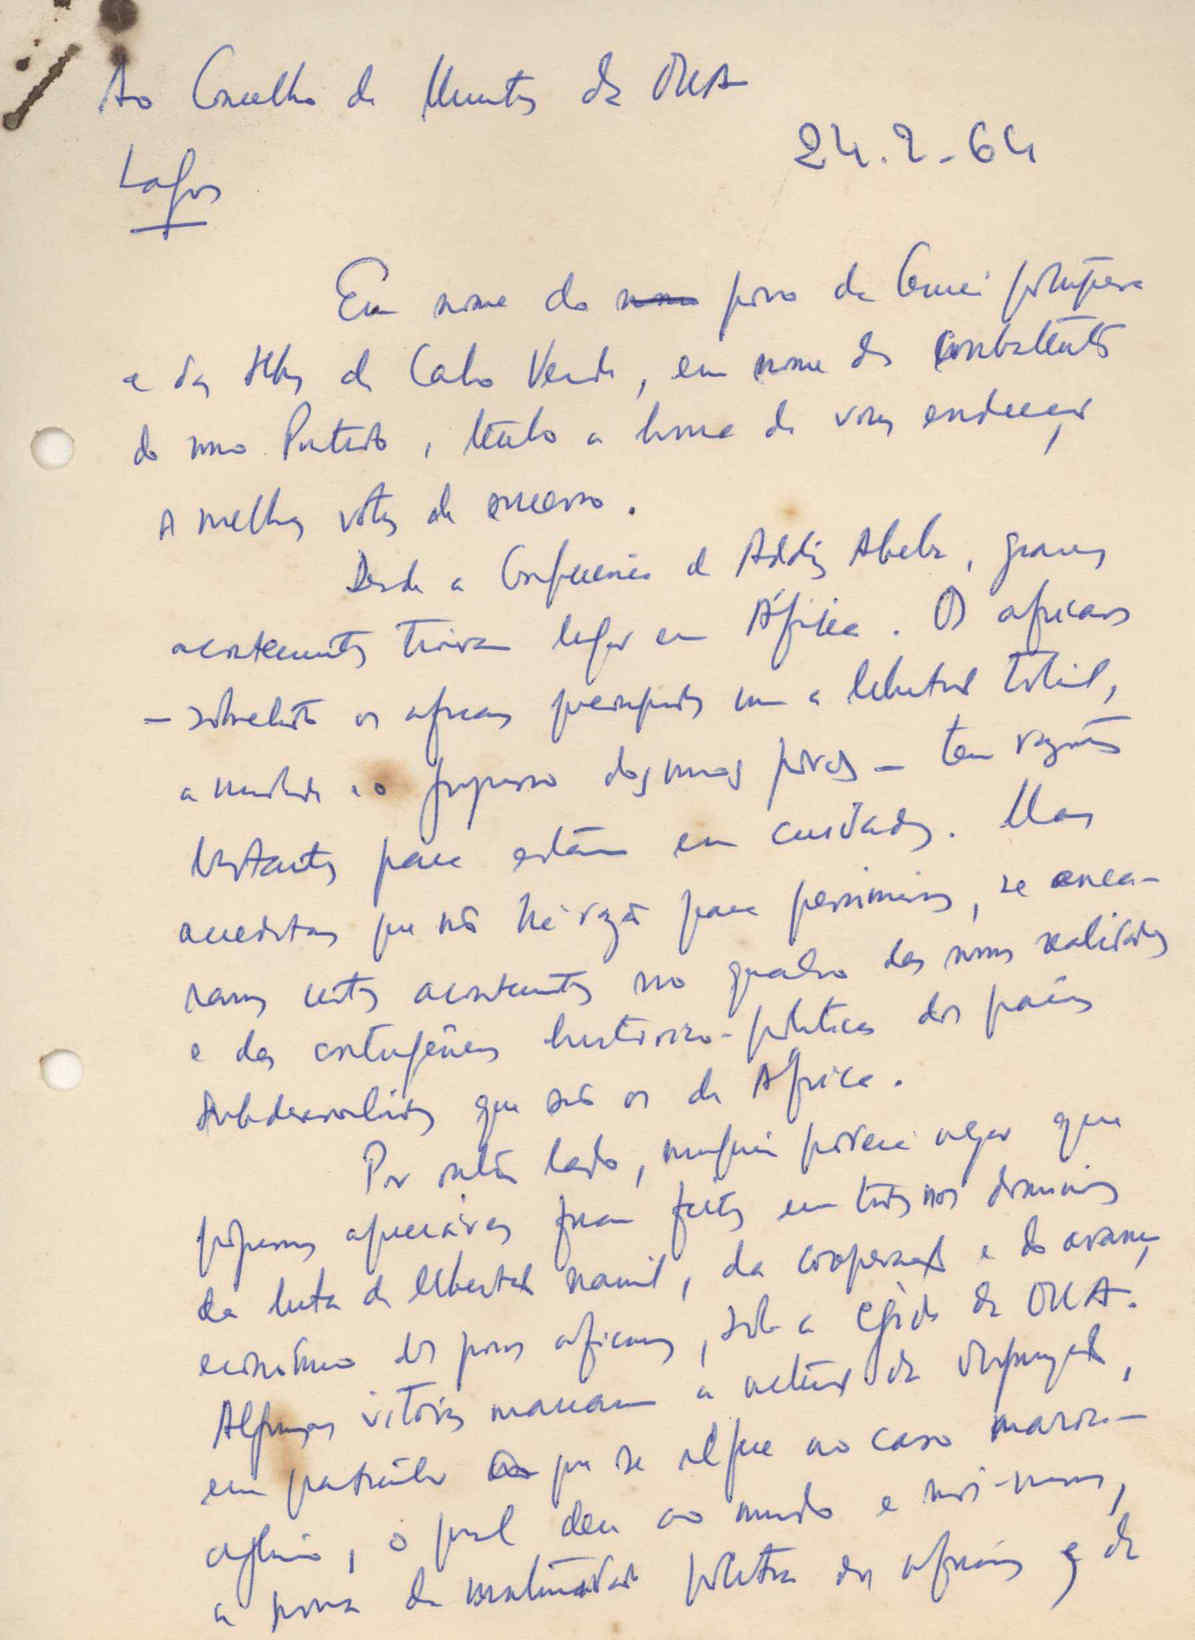 Ao Conselho de Ministros da OUA
24.2.64
Lagos
Em nome do povo da Guiné portuguesa
e das Ilhas de Cabo Verde, em nome dos combatentes
do nosso Partido, tenho a honra de vos endereçar
os melhores votos de sucesso.
Desde a Conferência de Addis Abeba, graves
acontecimentos tiveram lugar em África. Os africanos
— sobretudo os africanos preocupados com a liberdade total,
a unidade e o progresso dos nossos povos — têm razões
bastantes para estarem em cuidados. Mas
acreditamos que não há razão para pessimismos, se enca-
ramos certos acontecimentos no quadro das nossas realidades
e das contingências histórico-políticas dos países
subdesenvolvidos que são os da África.
Por outro lado, ninguém poderá negar que
progressos apreciáveis foram feitos em todos os domínios
da luta de libertação nacional, da cooperação e do avanço
económico dos povos africanos, sob a égide da OUA.
Algumas vitórias marcaram a actividade da organização,
em particular no que se refere ao caso marroco-
argelino, o qual deu ao mundo e a nós-mesmos,
a prova da maturidade política dos africanos e da